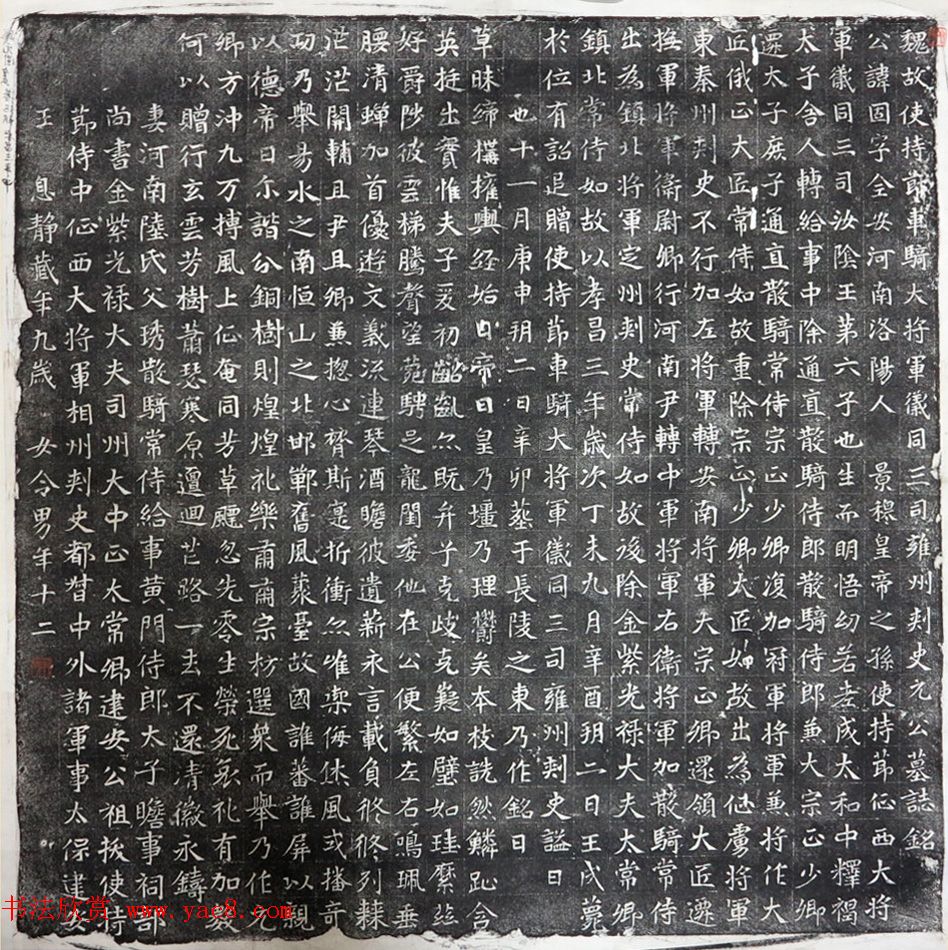 魏故使持節車騎大將軍儀同三司雍州刾史元公墓誌銘
公諱固字全安河南洛陽人　景穆皇帝之孫使持節征西大將
軍儀同三司汝陰王第六子也生而明悟幼若老成太和中釋褐
太子舍人轉給事中除通直散騎侍郎散騎侍郎兼大宗正少卿
遷太子庶子通直散騎常侍宗正少卿復加冠軍將軍兼將作大
匠俄正大匠常侍如故重除宗正少卿大匠如故出為征虜將軍
東秦州刾史不行加左將軍轉安南將軍大宗正卿還領大匠遷
撫軍將軍衛尉卿行河南尹轉中軍將軍右衛將軍加散騎常侍
出為鎮北將軍定州刾史常侍如故後除金紫光祿大夫太常卿
鎮北常侍如故以孝昌三年歲次丁未九月辛酉朔二日壬戌薨
於位有詔追贈使持節車騎大將軍儀同三司雍州刾史謚曰
也十一月庚申朔二日辛卯葬于長陵之東乃作銘曰
草昧締構權輿經始曰帝曰皇乃壃乃理欝矣本枝詵然鱗趾含
英挺出寔惟夫子爰初齠齔亦既弁子克岐克嶷如璧如珪縻茲
好爵陟彼雲梯騰聲望菀騁足龍閨委他在公便繁左右鳴珮垂
腰清蟬加首優遊文義流連琴酒瞻彼遺薪永言載負脩脩列棘
茫茫開輔且尹且卿兼揔心膂斯寔折衝亦唯禦侮休風或播奇
功乃舉易水之南恒山之北邯鄲舊風叢臺故國誰蕃誰屏以親
以德帝曰尒諧分銅樹則煌煌礼樂肅肅宗枋選衆而舉乃作元
卿方沖九万搏風上征奄同芳草飃忽先零生榮死哀礼有加數
何以贈行玄雲芳樹蕭瑟寒原邅迴芒路一去不還清徽永鑄
妻河南陸氏父琇散騎常侍給事黃門侍郎太子瞻事祠部
尚書金紫光祿大夫司州大中正太常卿建安公祖拔使持
節侍中征西大將軍相州刾史都督中外諸軍事太保建安
王　息靜藏年九歲　女令男年十二
书法欣赏 www.yac8.com